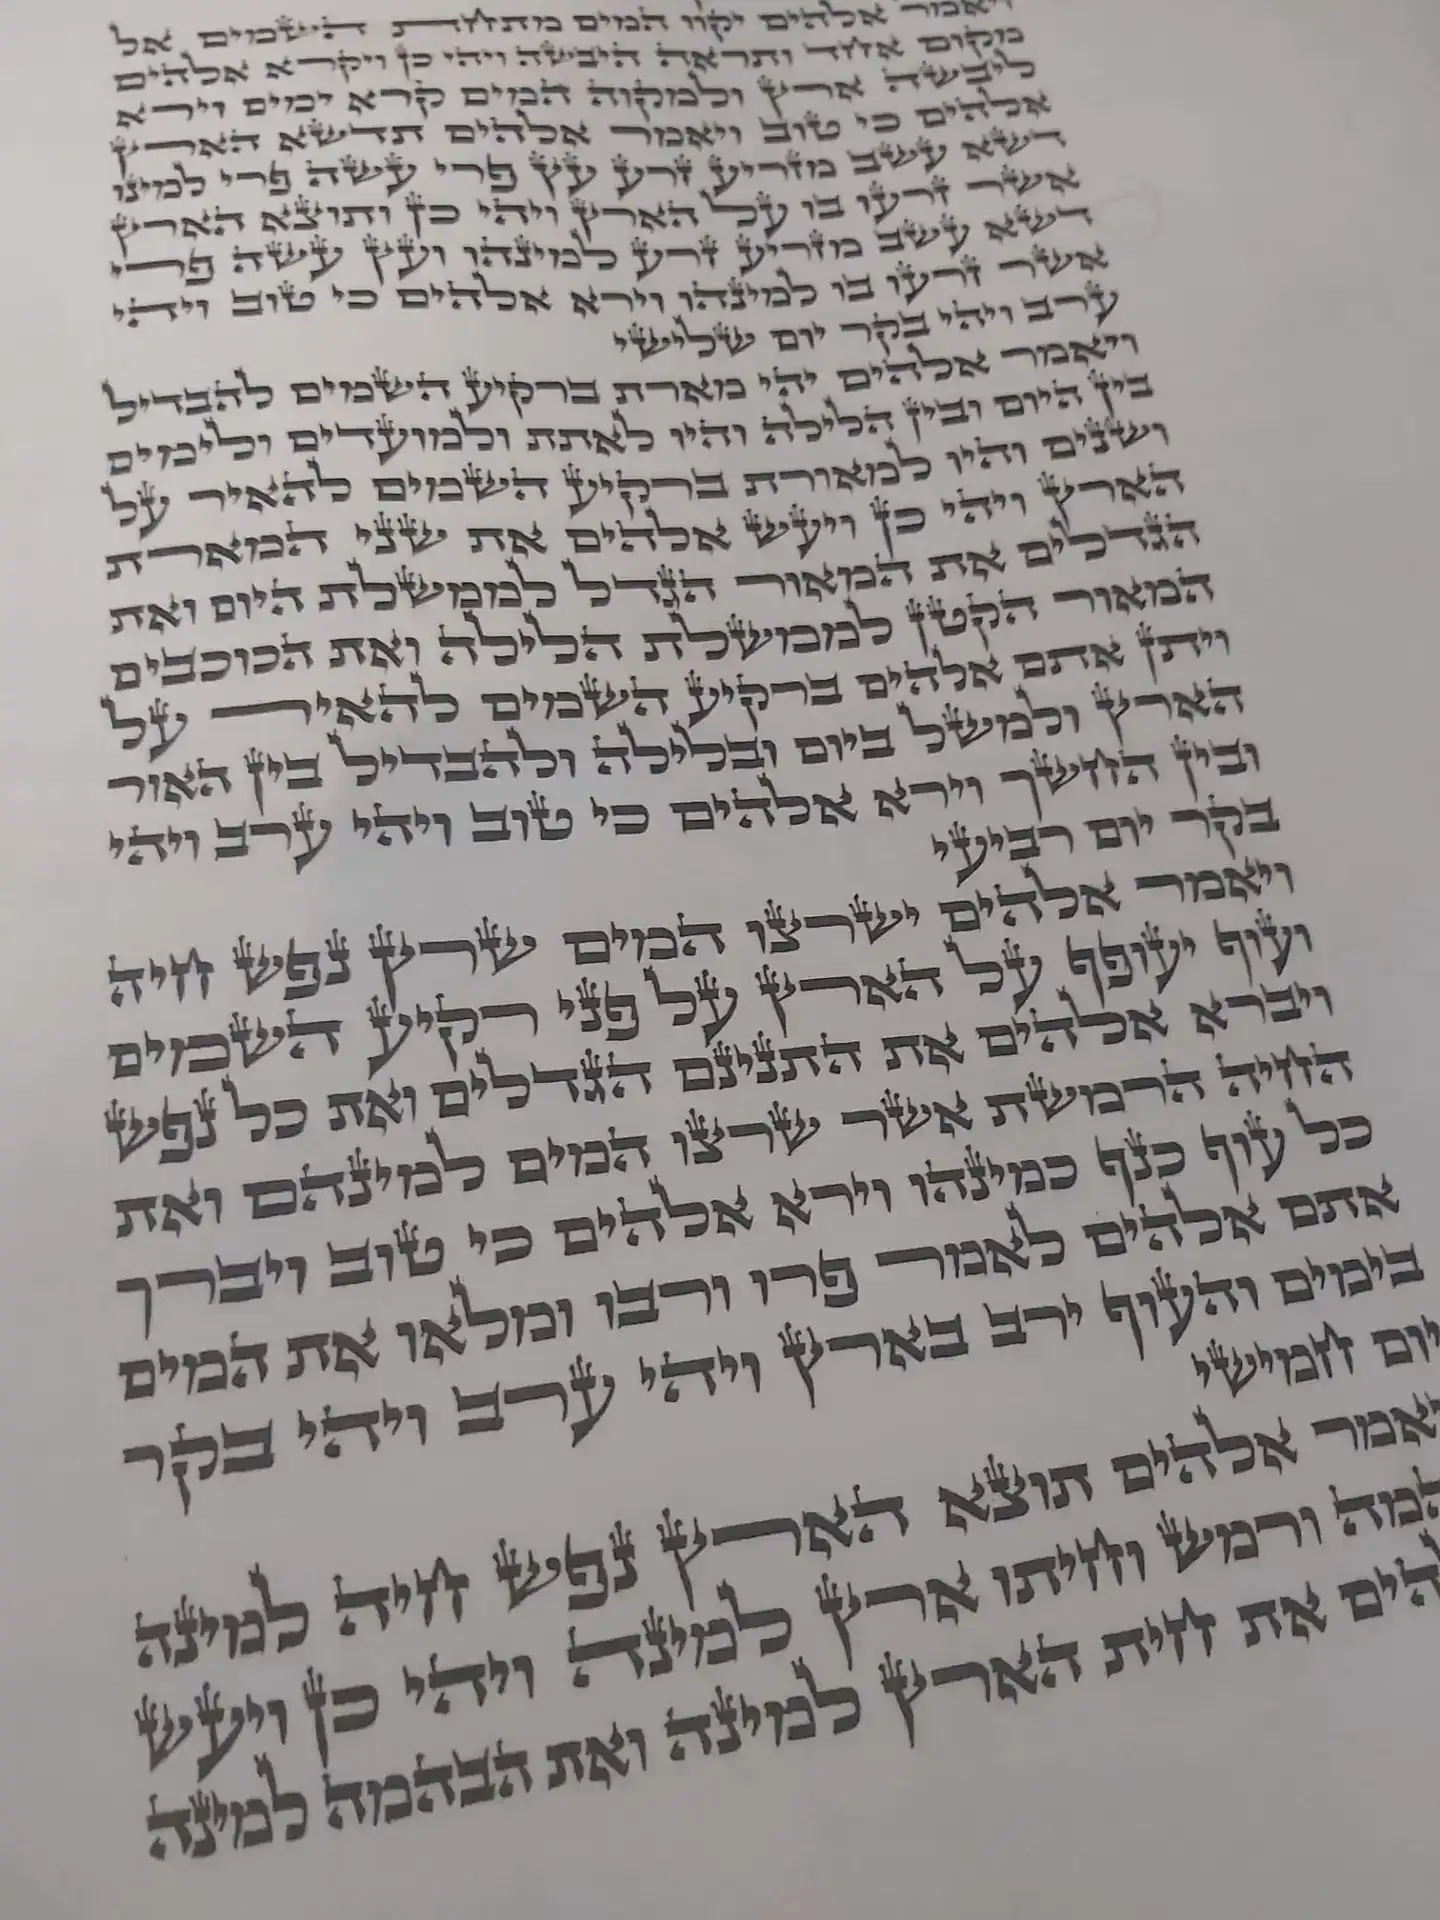 ויאמר אלהים יקוו המים מתחת השמים אל
מקום אחד ותראה היבשה ויהי כן ויקרא אלהים
ליבשה ארץ ולמקוה המים קרא ימים וירא
אלהים כי טוב ויאמר אלהים תדשא הארץ
דשא עשב מזריע זרע עץ פרי עשה פרי למינו
אשר זרעו בו על הארץ ויהי כן ותוצא הארץ
דשא עשב מזריע זרע למינהו ועץ עשה פרי
אשר זרעו בו למינהו וירא אלהים כי טוב ויהי
ערב ויהי בקר יום שלישי
ויאמר אלהים יהי מארת ברקיע השמים להבדיל
בין היום ובין הלילה והיו לאתת ולמועדים ולימים
ושנים והיו למאורת ברקיע השמים להאיר על
הארץ ויהי כן ויעש אלהים את שני המארת
הגדלים את המאור הגדל לממשלת היום ואת
המאור הקטן לממשלת הלילה ואת הכוכבים
ויתן אתם אלהים ברקיע השמים להאיר על
הארץ ולמשל ביום ובלילה ולהבדיל בין האור
ובין החשך וירא אלהים כי טוב ויהי ערב ויהי
בקר יום רביעי
ויאמר אלהים ישרצו המים שרץ נפש חיה
ועוף יעופף על הארץ על פני רקיע השמים
ויברא אלהים את התנינם הגדלים ואת כל נפש
החיה הרמשת אשר שרצו המים למינהם ואת
כל עוף כנף כמינהו וירא אלהים כי טוב ויברך
אתם אלהים לאמר פרו ורבו ומלאו את המים
בימים והעוף ירב בארץ ויהי ערב ויהי בקר
יום חמישי
יאמר אלהים תוצא הארץ נפש חיה למינה
המה ורמש וחיתו ארץ למינה ויהי כן ויעש
הים את חית הארץ למינה ואת הבהמה למינה